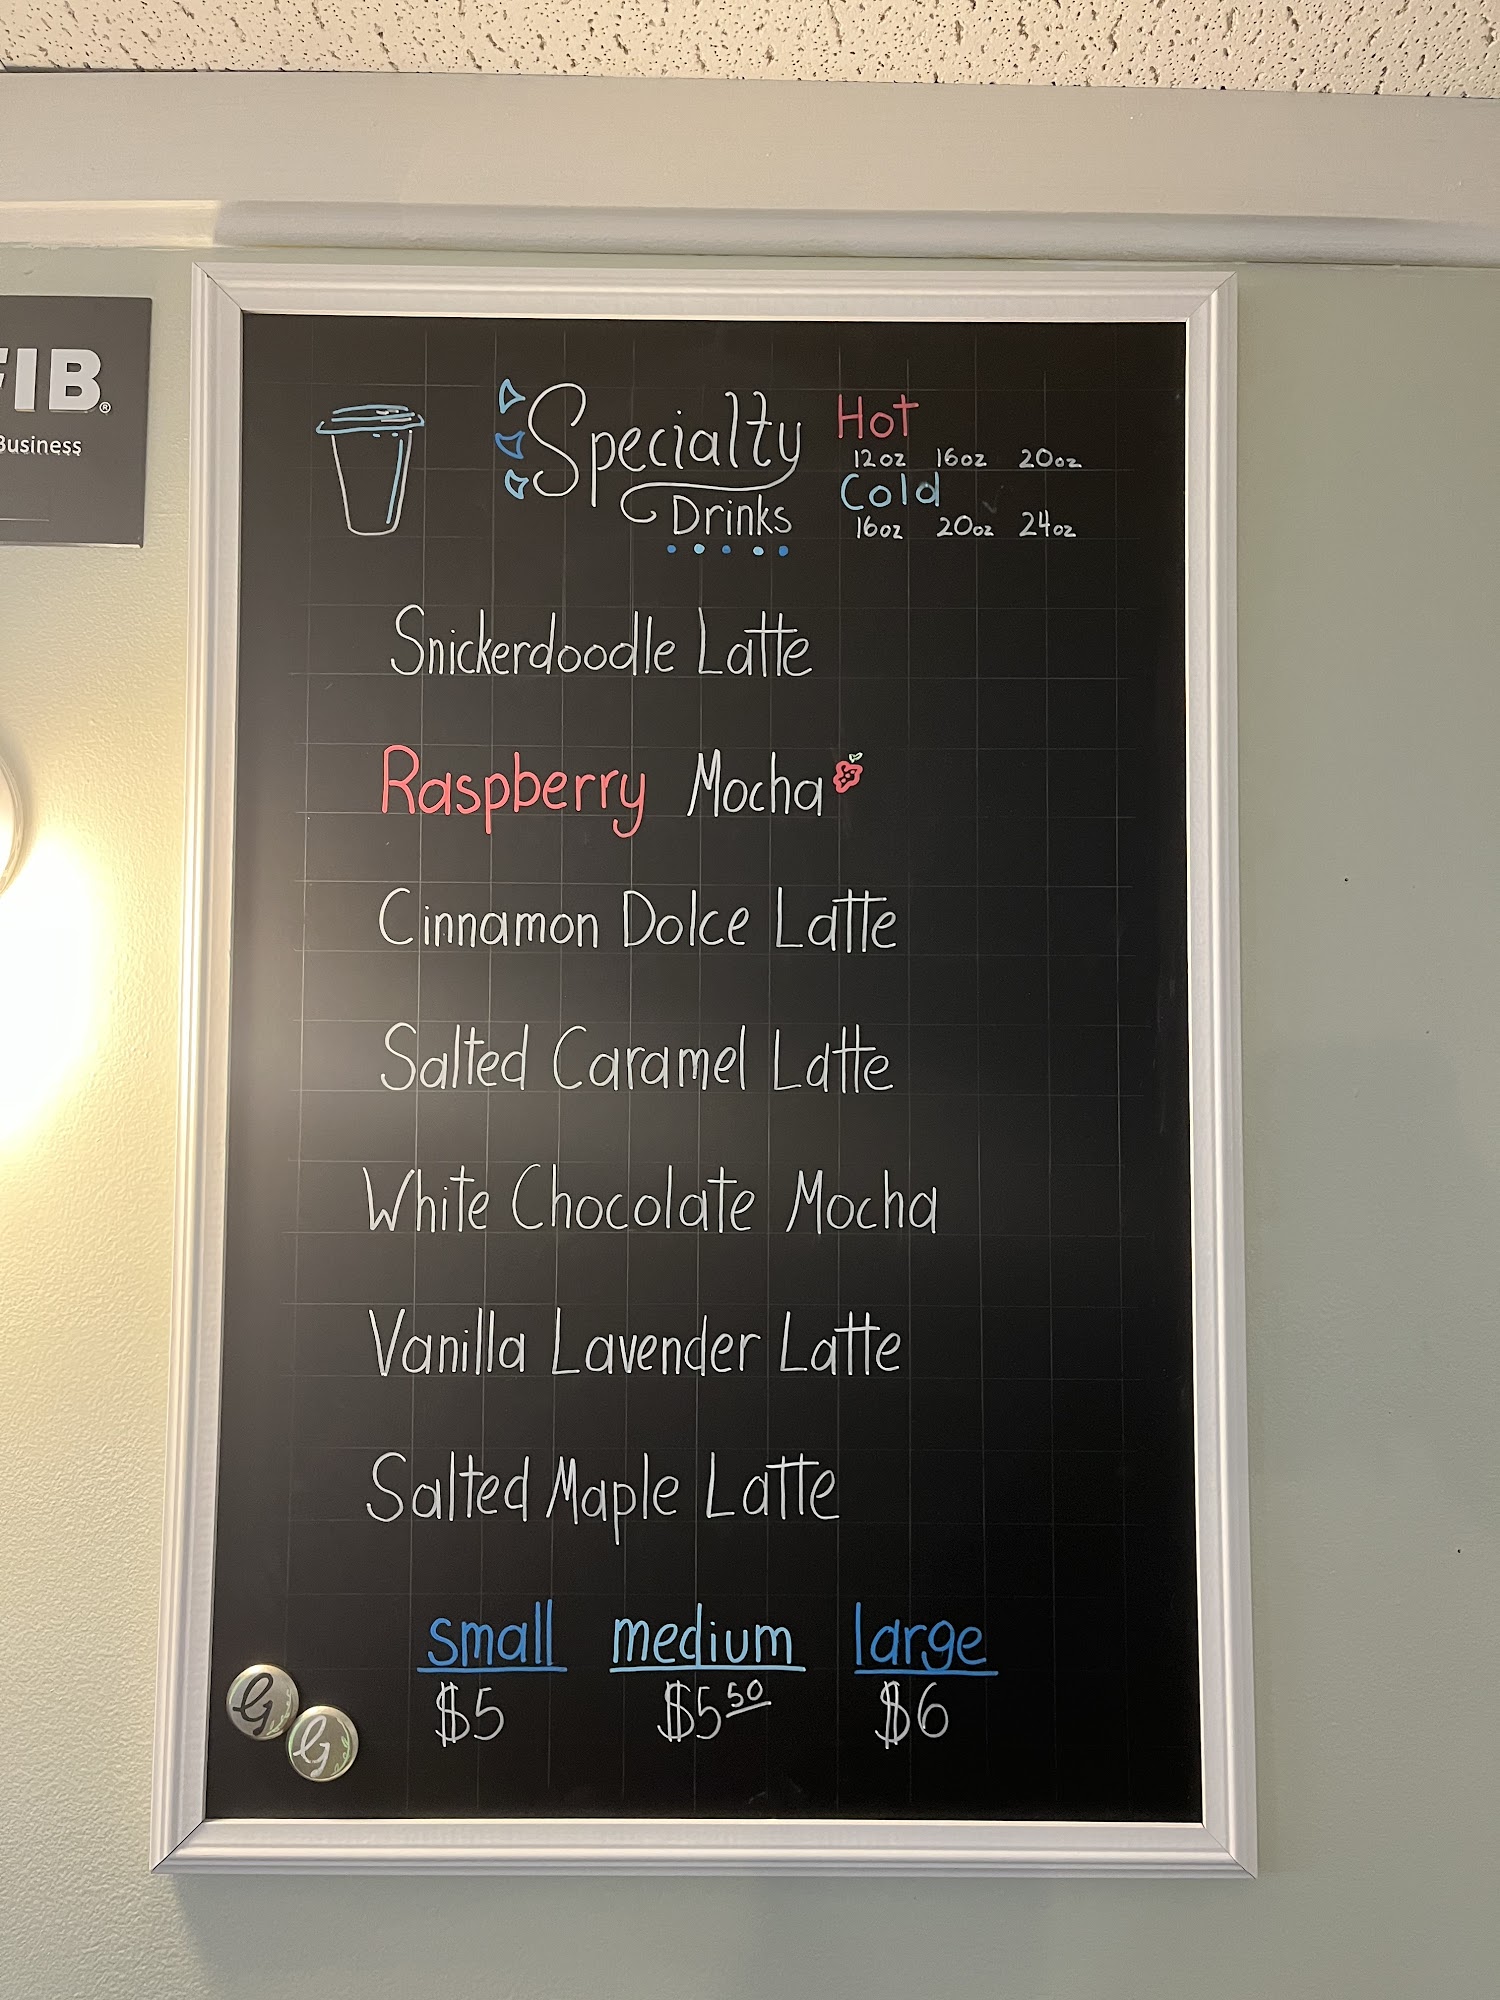 FIB®
Business
Specialty
Drinks
Hot
12oz 16oz 20oz
Cold
16oz 20oz 24oz
Snickerdoodle Latte
Raspberry Mocha
Cinnamon Dolce Latte
Salted Caramel Latte
White Chocolate Mocha
Vanilla Lavender Latte
Salted Maple Latte
small medium large
$5 $5 50 $6